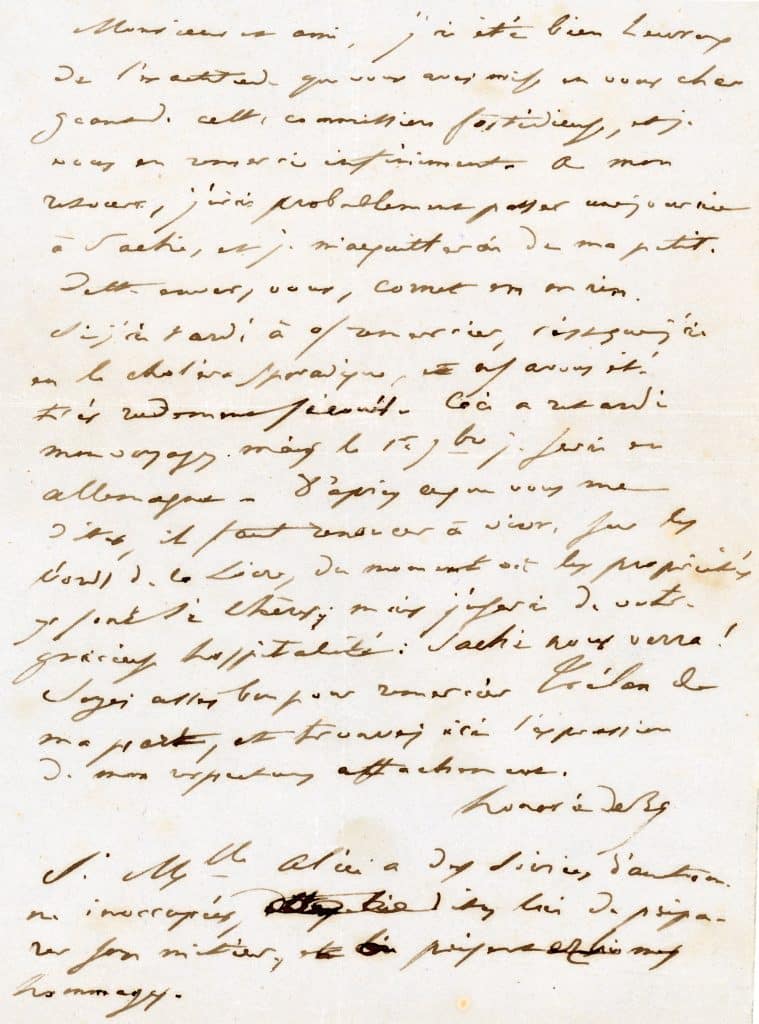 Monsieur et ami, j'ai été bien heureux
de l'exactitude que vous avez mise en vous char
geant de cette commission fastidieuse, et je
vous en remercie infiniment. à mon
retour, j'irai probablement passer une journée
à Saché, et je m'acquitterai de ma petite
dette envers vous, cornet en main.
Si j'ai tardi à remercier, c'est que j'ai
eu le choléra sporadique, et j'en avais été
très rudement secoué. Ceci a retardé
mon voyage. mais le 1er 9bre je serai en
allemagne - D'après ce que vous me
dites, il faut renoncer à vivre sur les
bords de la Loire, du moment où les propriétés
y sont si chères; mais j'userai de votre
gracieuse hospitalité: Saché nous verra!
Soyez assez bon pour remercier de
ma part, et trouvez ici l'expression
de mon respectueux attachement.
honoré de Bc
Si Mlle alice a des soirées d'autom
ne inoccupées, dites lui de prépa-
rer son métier, et présentez lui mes
hommages.